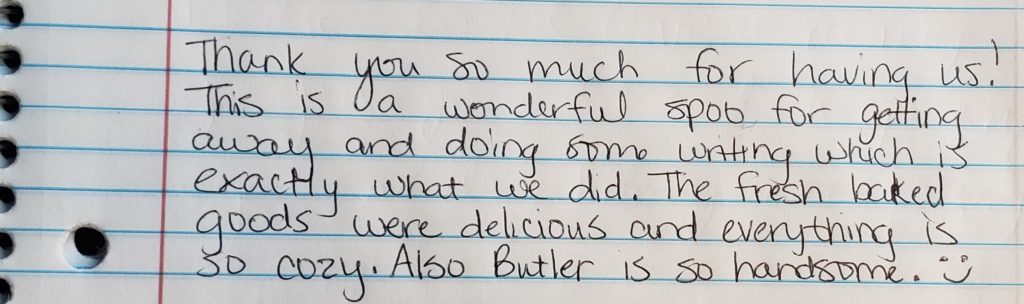 Thank you so much for having us!
This is a wonderful spot for getting
away and doing some writing which is
exactly what we did. The fresh baked
goods were delicious and everything is
so cozy. Also Butler is so handsome. :)